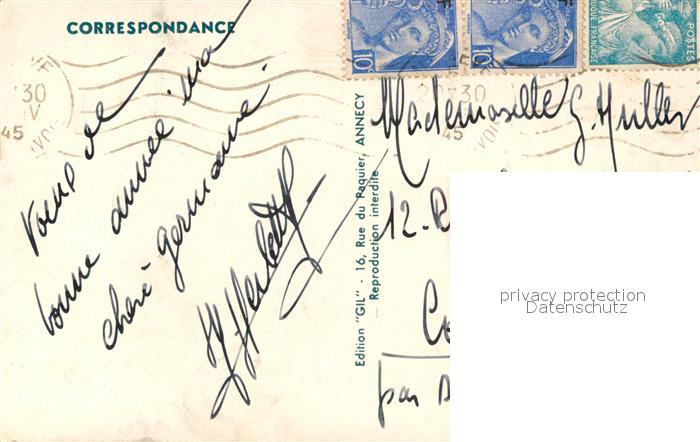 CORRESPONDANCE
10
10
F
POSTES
QUE FRANÇAISE
30
45
30
45
Voeux de
bonne année ma
chère germaine.
Edition "GIL" - 16, Rue du Paquier, ANNECY
Reproduction interdite
Mademoiselle G. Muller
12. R
Ce
par
privacy protection
Datenschutz